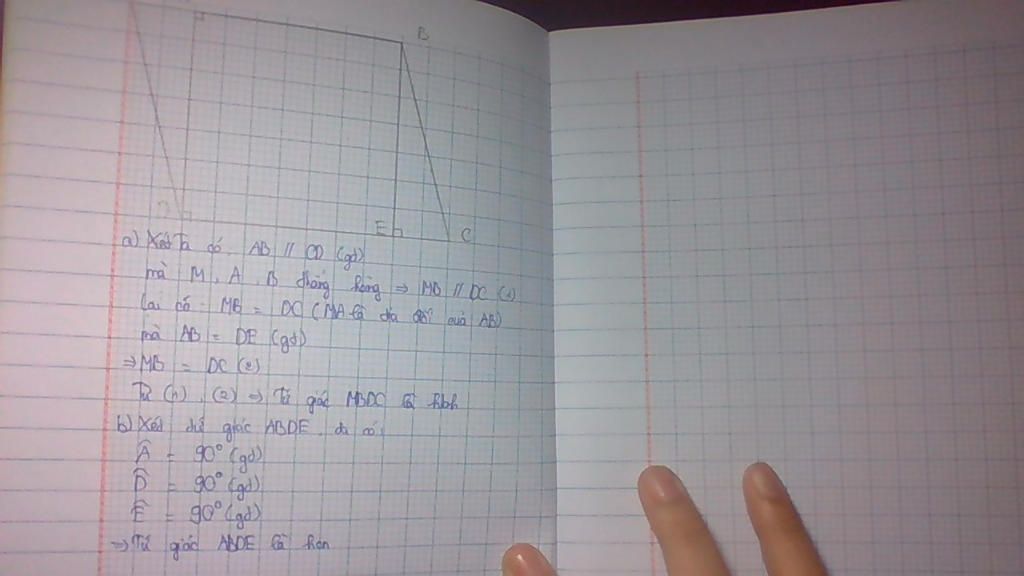 B
D
E
C
a) Xét Ta có. AB // CD (gt)
mà M, A, B thẳng hàng => MB // DC (1)
Lại có: MB = DC (MA là tia đối của AB)
mà AB = DE (gt)
=> MB = DC (2)
Từ (1), (2) => Tứ giác MBDC là hbh
b) Xét tứ giác ABDE, ta có:
Â = 90° (gt)
D̂ = 90° (gt)
Ê = 90° (gt)
=> Tứ giác ABDE là hcn